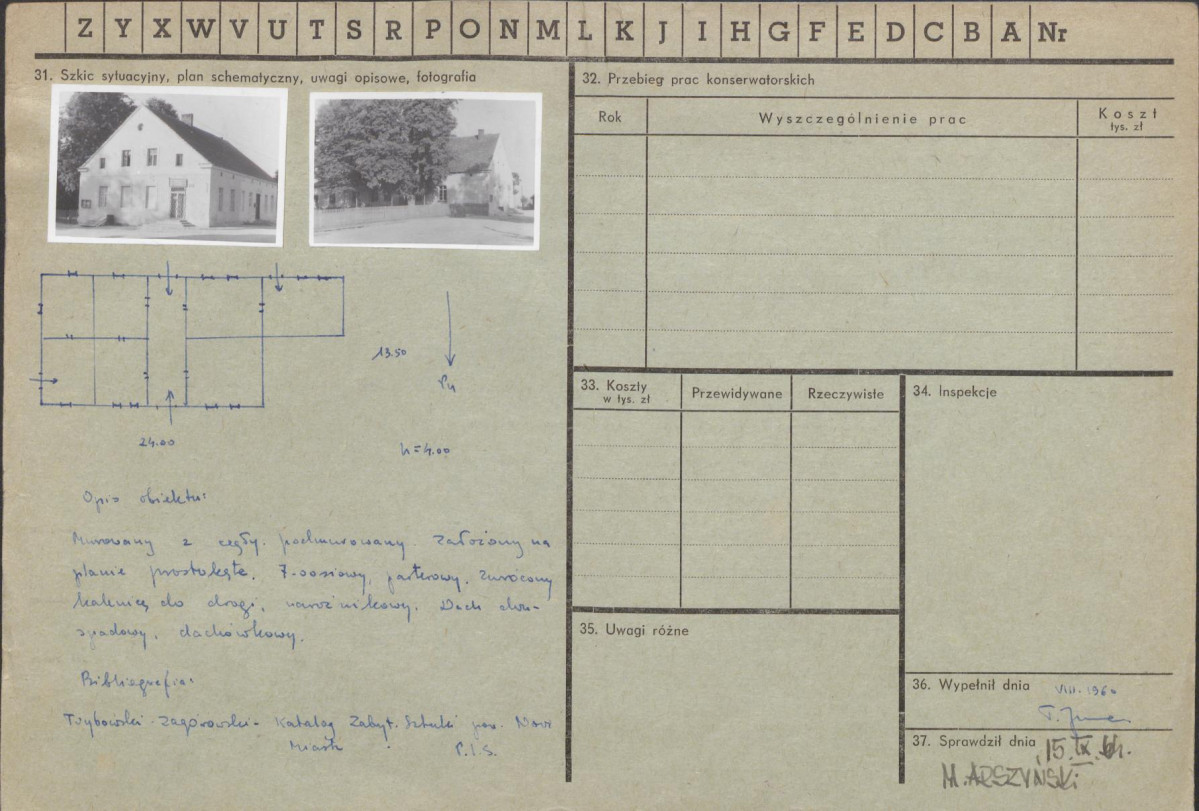 Z Y X W V U T S R P O N M L K J I H G F E D C B A Nr
31. Szkic sytuacyjny, plan schematyczny, uwagi opisowe, fotografia
13.50
24.00
h = 4.00
Opis obiektu:
Murowany z cegły. podmurowany. Założony na
planie prostokąta. 7-osiowy, parterowy. Zwrócony
kalenicą do drogi, narożnikowy. Dach dwu-
spadowy, dachówkowy.
Bibliografia:
Zagórowski - Katalog Zabyt. Sztuki pow. Nowe
Miasto P.I.S.
32. Przebieg prac konserwatorskich
Rok Wyszczególnienie prac Koszt
tys. zł
33. Koszty
w tys. zł
Przewidywane Rzeczywiste
34. Inspekcje
35. Uwagi różne
36. Wypełnił dnia VIII. 1960
37. Sprawdził dnia 15. IX. 61.
M. ARSZYŃSKI